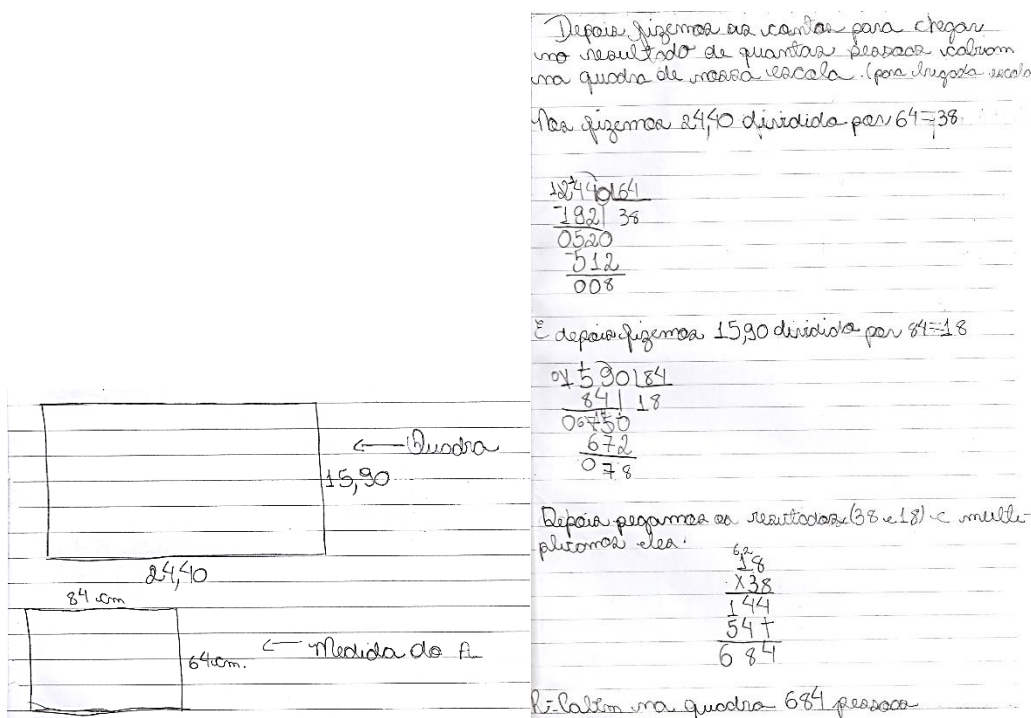 Quadra
15,90
24,40
84 cm
64 cm.
Medida do A
Depois fizemos as contas para chegar
no resultado de quantas pessoas cabiam
na quadra de nossa escola. (para brigada escola
Nos fizemos 24,40 dividido por 64=38.
2440 64
192 38
0520
512
008
E depois fizemos 15,90 dividido por 84=18
1590 84
84 18
0750
672
078
Depois pegamos os resultados (38 e 18) e multi-
plicamos eles.
6,2
18
x38
144
54+
684
R=Cabem na quadra 684 pessoas